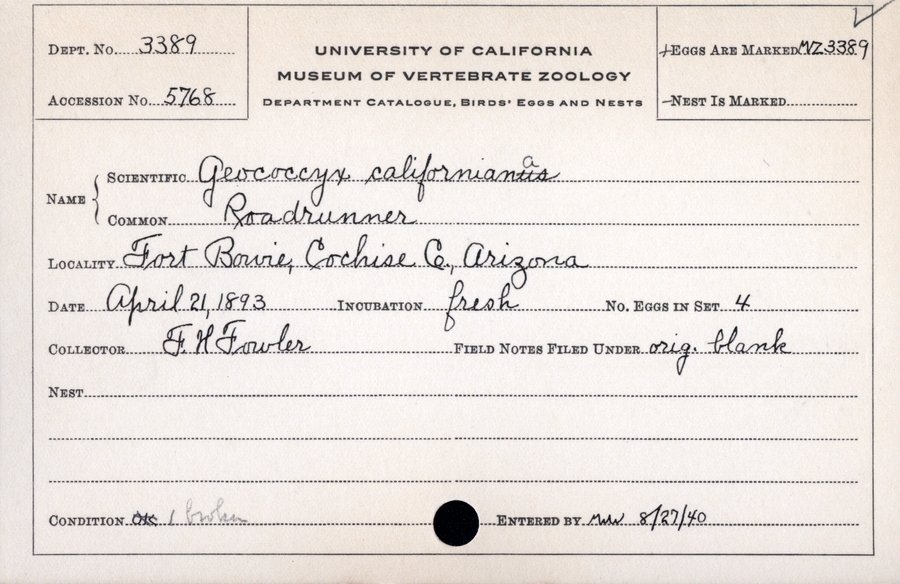 DEPT. NO. 3389
ACCESSION NO. 5768
UNIVERSITY OF CALIFORNIA
MUSEUM OF VERTEBRATE ZOOLOGY
DEPARTMENT CATALOGUE, BIRDS' EGGS AND NESTS
EGGS ARE MARKED MVZ3389
NEST IS MARKED
NAME
SCIENTIFIC Geococcyx californiana
COMMON Roadrunner
LOCALITY Fort Bowie, Cochise Co., Arizona
DATE April 21, 1893 INCUBATION fresh NO. EGGS IN SET 4
COLLECTOR F. H Fowler FIELD NOTES FILED UNDER orig. blank
NEST
CONDITION OK 1 broken ENTERED BY 8/27/40